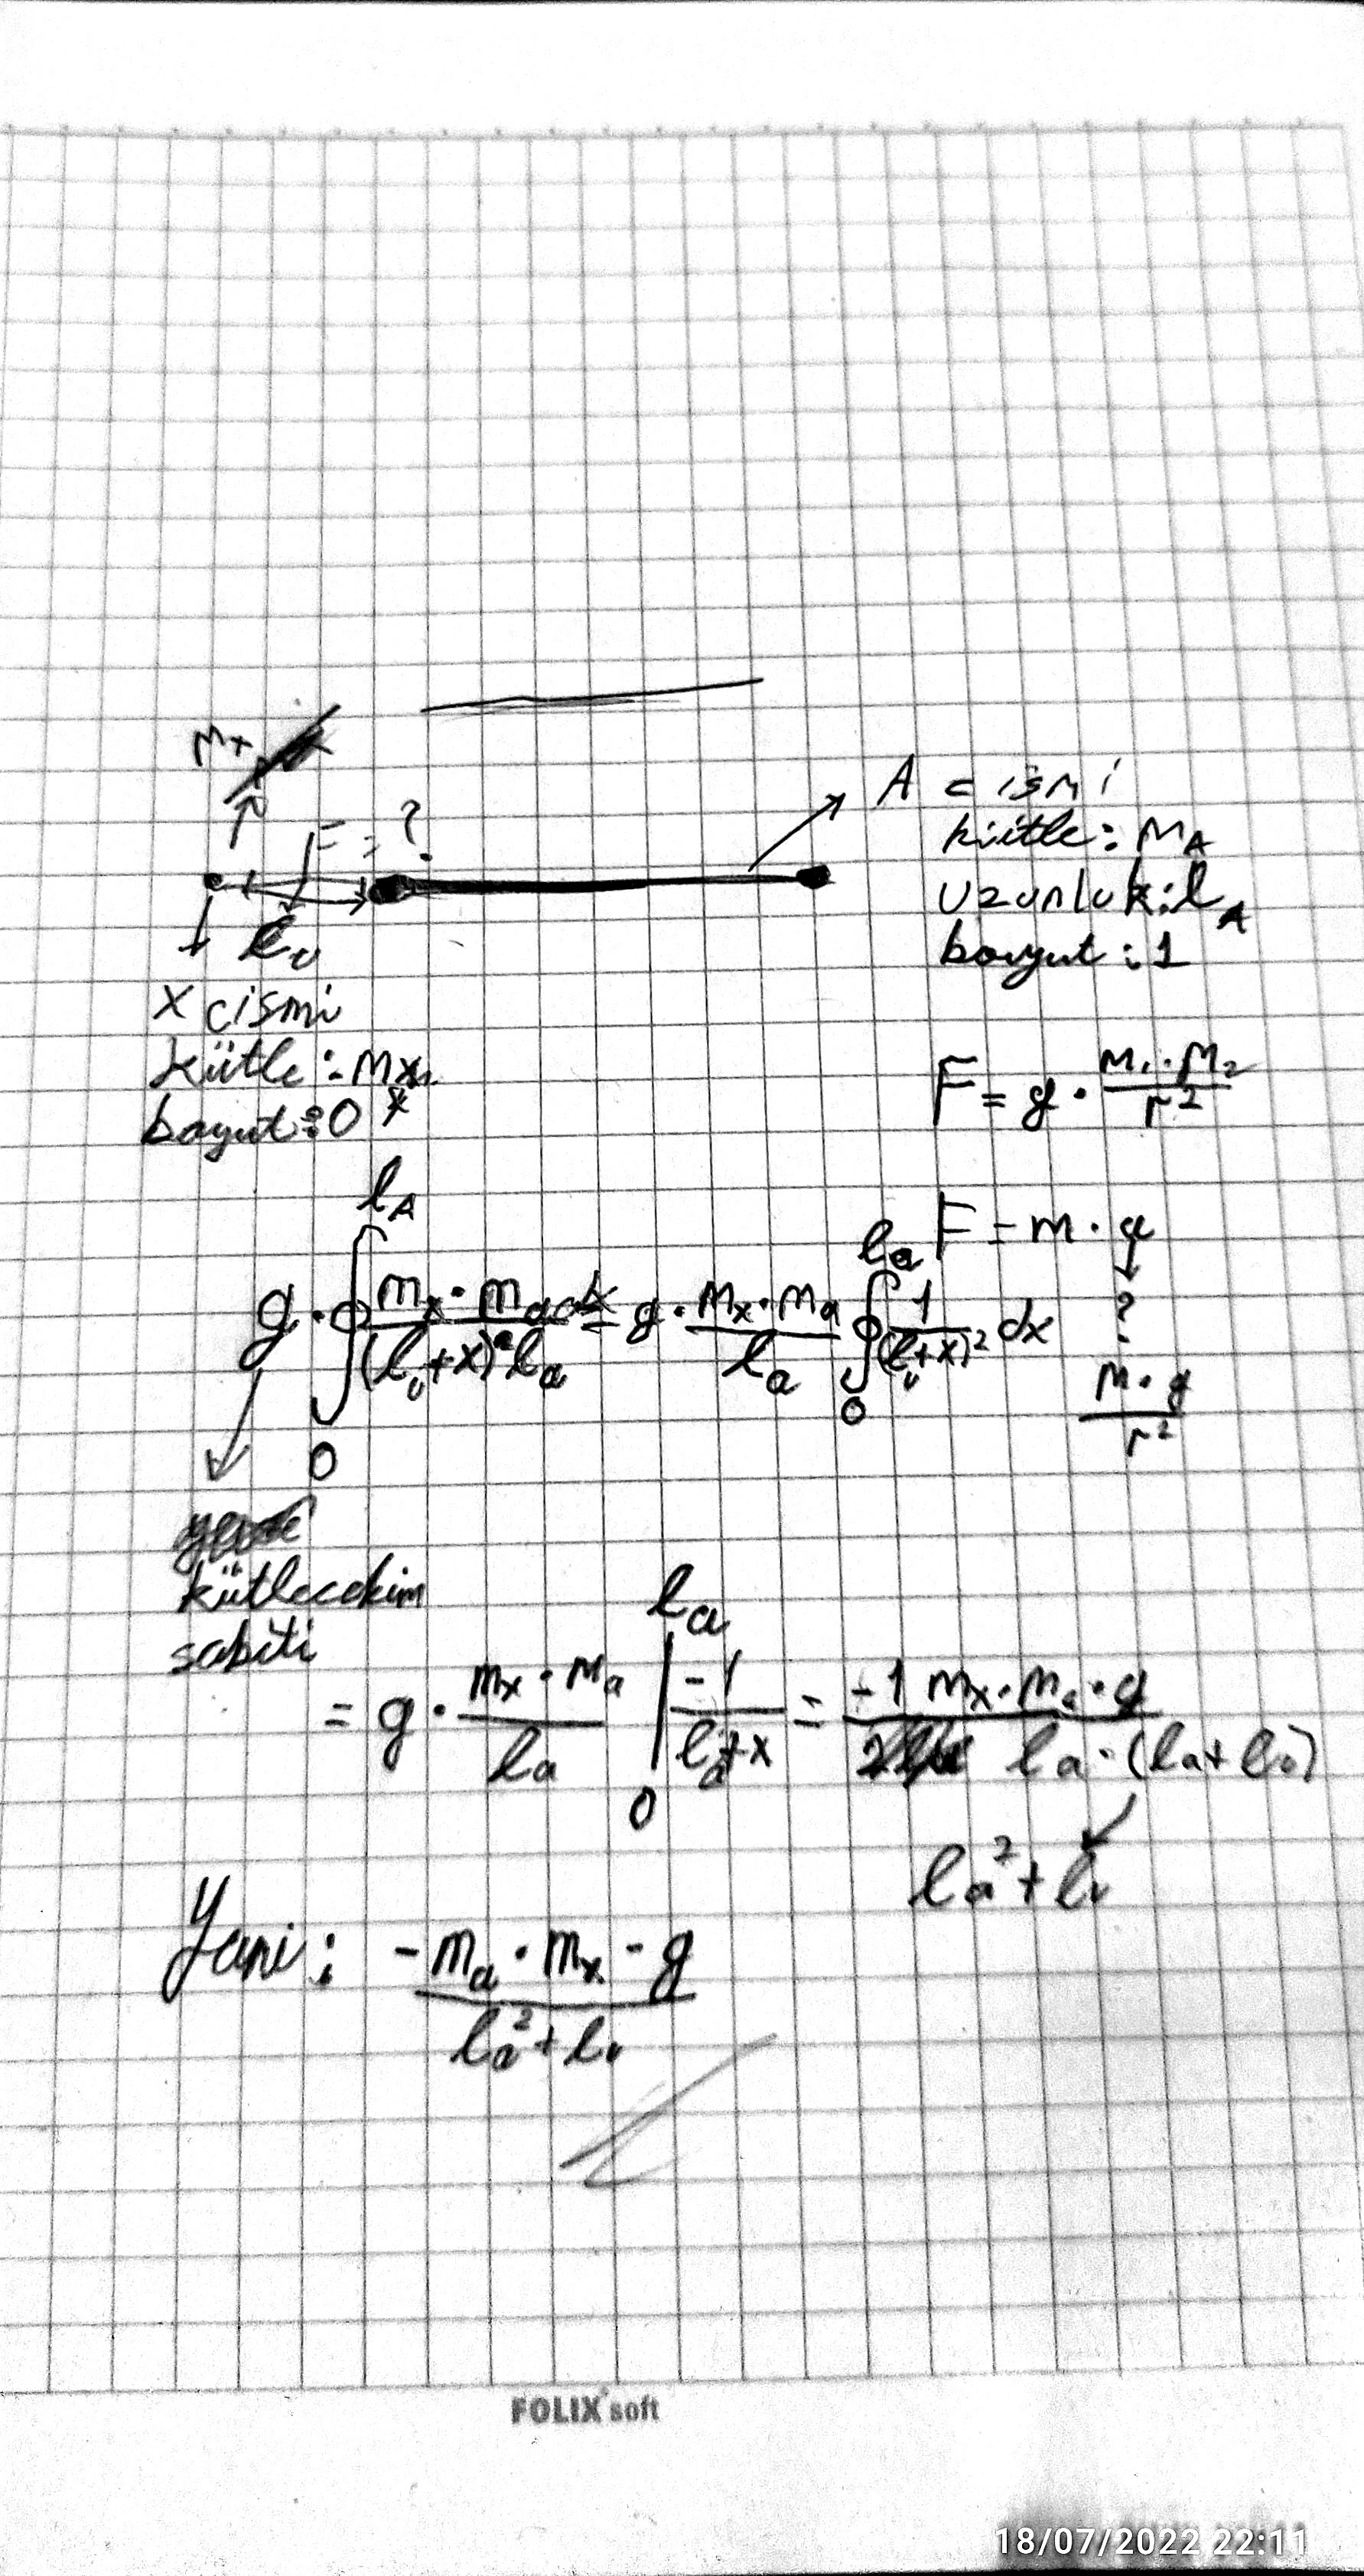 Mx
F = ?
l₀
A cismi
kütle: MA
uzunluk: lA
boyut: 1
x cismi
kütle: Mx
boyut: 0
F = g · M₁·M₂ / r²
F = m · a
?
M·g / r²
g · ∫₀^lA mx·ma dx / (l₀+x)² la = g · mx·ma / la ∫₀^la 1 / (l₀+x)² dx
kütlecekim
sabiti
= g · mx·ma / la |₀^la -1 / la+x = -1 mx·ma·g / la·(la+l₀)
la²+l₀
Yani: -ma·mx·g / la²+l₀
FOLIX soft
18/07/2022 22:11